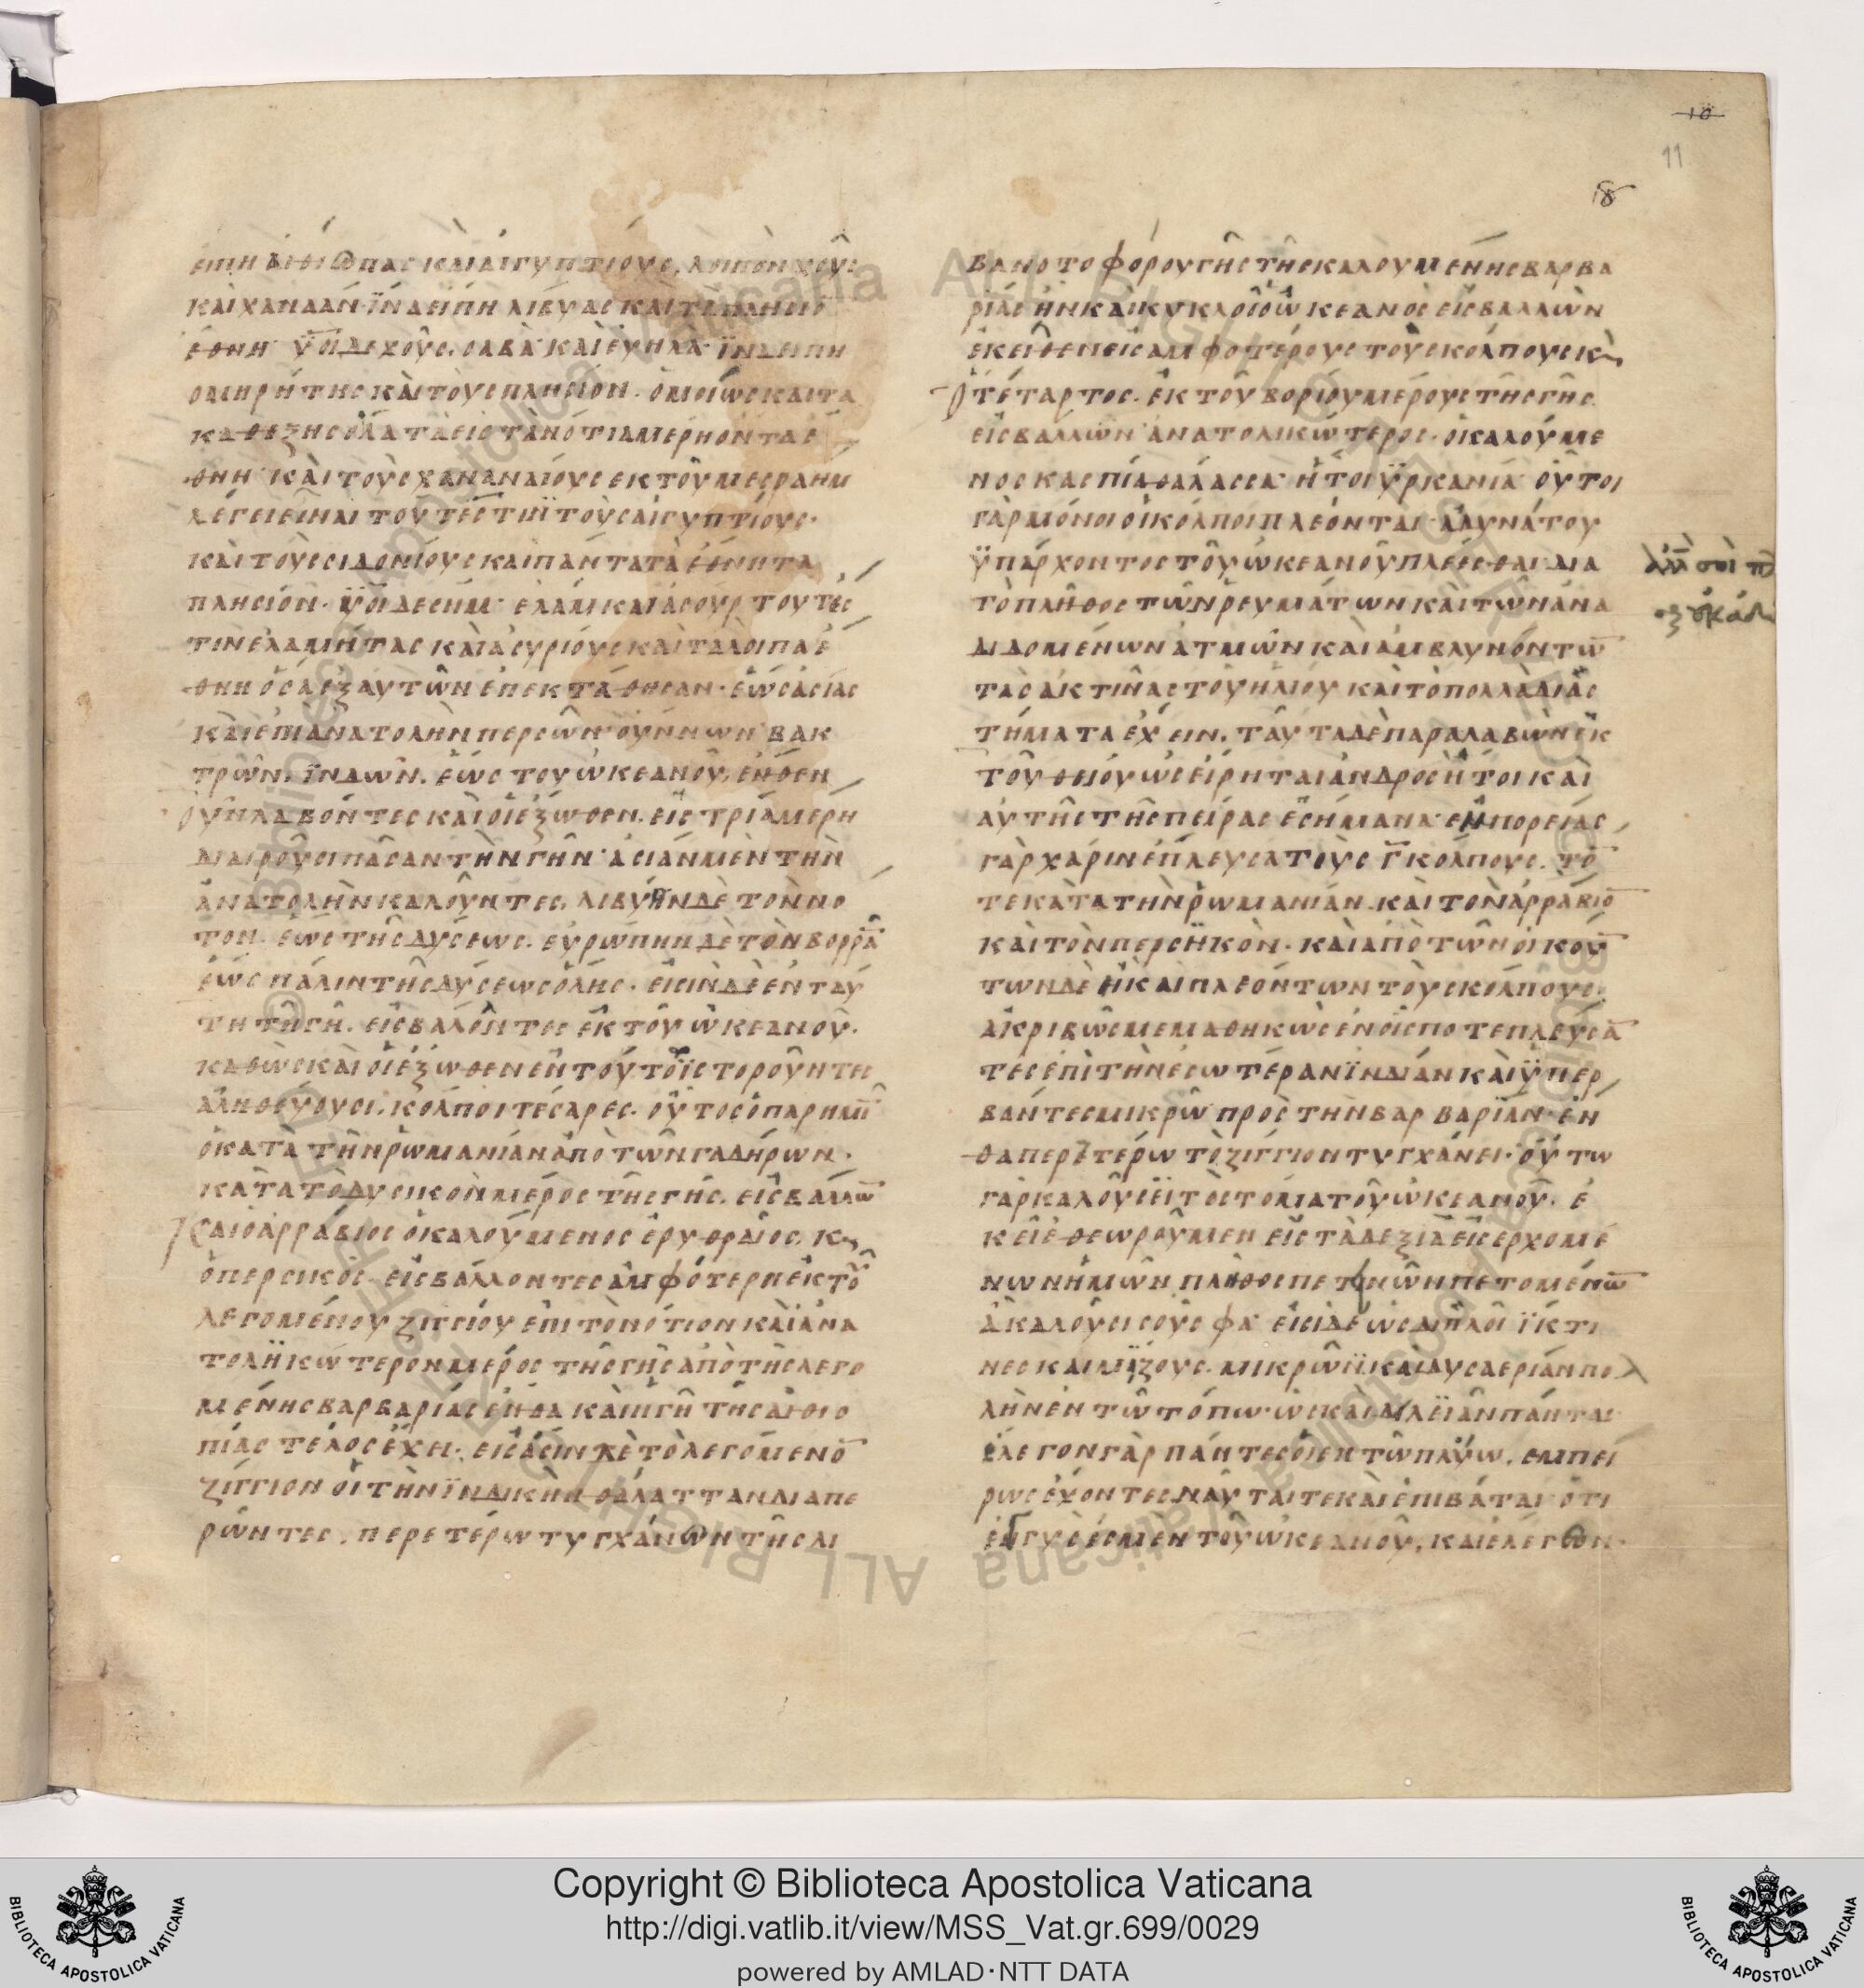 10
11
ΕΙΠΗ ΑΙΘΙΟΠΑϹ ΚΑΙ ΑΙΓΥΠΤΙΟΥϹ. ΛΟΙΠΟΝ ΧΟΥϹ
ΚΑΙ ΧΑΝΑΑΝ· ΪΝΑ ΕΙΠΗ ΛΙΒΥΑϹ ΚΑΙ ΤΑ ΠΛΗϹΙΟ̅
ΕΘΝΗ· Υ̅Ϊ ΔΕ ΧΟΥϹ. ϹΑΒΑ ΚΑΙ ΕΥΗΛΑ· ΪΝΑ ΕΙΠΗ
ΟΜΗΡΗΤΗϹ ΚΑΙ ΤΟΥϹ ΠΛΗϹΙΟΝ. ΟΜΟΙΩϹ ΚΑΙ ΤΑ
ΚΑΘΕΞΗϹ ΟΛΑ ΤΑ ΕΙϹ ΤΑ ΝΟΤΙΑ ΜΕΡΗ ΟΝΤΑ Ε
ΘΝΗ· ΚΑΙ ΤΟΥϹ ΧΑΝΑΝΑΙΟΥϹ ΕΚ ΤΟΥ ΜΕϹΡΑΗΜ
ΛΕΓΕΙ ΕΙΝΑΙ ΤΟΥΤΕϹΤΙΝ ΤΟΥϹ ΑΙΓΥΠΤΙΟΥϹ·
ΚΑΙ ΤΟΥϹ ϹΙΔΟΝΙΟΥϹ ΚΑΙ ΠΑΝΤΑ ΤΑ ΕΘΝΗ ΤΑ
ΠΛΗϹΙΟΝ· Υ̅Ϊ ΔΕ ϹΗΜ· ΕΛΑΜ ΚΑΙ ΑϹΟΥΡ ΤΟΥΤΕϹ
ΤΙΝ ΕΛΑΜΗΤΑϹ ΚΑΙ ΑϹΥΡΙΟΥϹ ΚΑΙ ΤΑ ΛΟΙΠΑ Ε
ΘΝΗ ΟϹΑ ΕΞ ΑΥΤΩΝ ΕΠΕΚΤΑΘΗϹΑΝ· ΕΩϹ ΑϹΙΑϹ
ΚΑΙ ΕΠΙ ΑΝΑΤΟΛΗΝ ΠΕΡϹΩΝ ΟΥΝΝΩΝ ΒΑΚ
ΤΡΩΝ. ΪΝΔΩΝ. ΕΩϹ ΤΟΥ ΩΚΕΑΝΟΥ. ΕΝΘΕΝ
ΟΥΝ ΛΑΒΟΝΤΕϹ ΚΑΙ ΟΙ ΕΞΩΘΕΝ. ΕΙϹ ΤΡΙΑ ΜΕΡΗ
ΔΙΑΙΡΟΥϹΙ ΠΑϹΑΝ ΤΗΝ ΓΗΝ· ΑϹΙΑΝ ΜΕΝ ΤΗΝ
ΑΝΑΤΟΛΗΝ ΚΑΛΟΥΝΤΕϹ. ΛΙΒΥΗΝ ΔΕ ΤΟΝ ΝΟ
ΤΟΝ. ΕΩϹ ΤΗϹ ΔΥϹΕΩϹ. ΕΥΡΩΠΗΝ ΔΕ ΤΟΝ ΒΟΡΡΑ̅
ΕΩϹ ΠΑΛΙΝ ΤΗϹ ΔΥϹΕΩϹ ΟΛΗϹ· ΕΙϹΙΝ ΔΕ ΕΝ ΤΑΥ
ΤΗ ΤΗ ΓΗ. ΕΙϹΒΑΛΟΝΤΕϹ ΕΚ ΤΟΥ ΩΚΕΑΝΟΥ·
ΚΑΘΩϹ ΚΑΙ ΟΙ ΕΞΩΘΕΝ ΕΝ ΤΟΥΤΟ ΪϹΤΟΡΟΥΝΤΕϹ
ΑΛΗΘΕΥΟΥϹΙ. ΚΟΛΠΟΙ ΤΕϹΑΡΕϹ. ΟΥΤΟϹ Ο ΠΑΡ ΗΜΙ̅
Ο ΚΑΤΑ ΤΗΝ ΡΩΜΑΝΙΑΝ ΑΠΟ ΤΩΝ ΓΑΔΗΡΩΝ·
ΚΑΤΑ ΤΟ ΔΥϹΙΚΟΝ ΜΕΡΟϹ ΤΗϹ ΓΗϹ. ΕΙϹΒΑΛΛΩ̅
ϹΑΙ Ο ΑΡΡΑΒΙΟϹ Ο ΚΑΛΟΥΜΕΝΟϹ ΕΡΥΘΡΑΙΟϹ. Κϗ
Ο ΠΕΡϹΙΚΟϹ. ΕΙϹΒΑΛΛΟΝΤΕϹ ΑΜΦΟΤΕΡΗ ΕΚ ΤΟΥ
ΛΕΓΟΜΕΝΟΥ ΖΙΓΓΙΟΥ ΕΠΙ ΤΟ ΝΟΤΙΟΝ ΚΑΙ ΑΝΑ
ΤΟΛΗΚΩΤΕΡΟΝ ΜΕΡΟϹ ΤΗϹ ΓΗϹ ΑΠΟ ΤΗϹ ΛΕΓΟ
ΜΕΝΗϹ ΒΑΡΒΑΡΙΑϹ ΕΝΘΑ ΚΑΙ Η ΓΗ ΤΗϹ ΑΙΘΙΟ
ΠΙΑϹ ΤΕΛΟϹ ΕΧΕΙ· ΕΙϹΑϹΙΝ ΔΕ ΤΟ ΛΕΓΟΜΕΝΟ̅
ΖΙΓΓΙΟΝ ΟΙ ΤΗΝ ΪΝΔΙΚΗΝ ΘΑΛΑΤΤΑΝ ΔΙΑΠΕ
ΡΩΝΤΕϹ. ΠΕΡΕΤΕΡΩ ΤΥΓΧΑΝΟΝ ΤΗϹ ΛΙ
ΒΑΝΟΤΟΦΟΡΟΥ ΓΗϹ ΤΗϹ ΚΑΛΟΥΜΕΝΗϹ ΒΑΡΒΑ
ΡΙΑϹ ΗΝ ΚΑΙ ΚΥΚΛΟΙ Ο ΩΚΕΑΝΟϹ ΕΙϹΒΑΛΛΩΝ
ΕΚΕΙΘΕΝ ΕΙϹ ΑΜΦΟΤΕΡΟΥϹ ΤΟΥϹ ΚΟΛΠΟΥϹ Κϗ
Ο ΤΕΤΑΡΤΟϹ. ΕΚ ΤΟΥ ΒΟΡΙΟΥ ΜΕΡΟΥϹ ΤΗϹ ΓΗϹ
ΕΙϹΒΑΛΛΩΝ ΑΝΑΤΟΛΙΚΩΤΕΡΟϹ· Ο ΚΑΛΟΥΜΕ
ΝΟϹ ΚΑϹΠΙΑ ΘΑΛΑϹϹΑ· ΗΤΟΙ ΫΡΚΑΝΙΑ· ΟΥΤΟΙ
ΓΑΡ ΜΟΝΟΙ ΟΙ ΚΟΛΠΟΙ ΠΛΕΟΝΤΑΙ· ΑΔΥΝΑΤΟΥ
ΫΠΑΡΧΟΝΤΟϹ ΤΟΥ ΩΚΕΑΝΟΥ ΠΛΕΕϹΘΑΙ ΔΙΑ
ΤΟ ΠΛΗΘΟϹ ΤΩΝ ΡΕΥΜΑΤΩΝ ΚΑΙ ΤΩΝ ΑΝΑ
ΔΙΔΟΜΕΝΩΝ ΑΤΜΩΝ ΚΑΙ ΑΜΒΛΥΝΟΝΤΩ̅
ΤΑϹ ΑΚΤΙΝΑϹ ΤΟΥ ΗΛΙΟΥ ΚΑΙ ΤΟ ΠΟΛΛΑ ΔΙΑϹ
ΤΗΜΑΤΑ ΕΧΕΙΝ. ΤΑΥΤΑ ΔΕ ΠΑΡΑΛΑΒΩΝ ΕΚ
ΤΟΥ ΘΕΙΟΥ ΩϹ ΕΙΡΗΤΑΙ ΑΝΔΡΟϹ Η ΤΟΙ ΚΑΙ
ΑΥΤΗϹ ΤΗϹ ΠΕΙΡΑϹ ΕϹΗΜΑΝΑ· ΕΜΠΟΡΕΙΑϹ
ΓΑΡ ΧΑΡΙΝ ΕΠΛΕΥϹΑ ΤΟΥϹ Γ̅ ΚΟΛΠΟΥϹ. ΤΟ̅
ΤΕ ΚΑΤΑ ΤΗΝ ΡΩΜΑΝΙΑΝ. ΚΑΙ ΤΟΝ ΑΡΡΑΒΙΟ̅
ΚΑΙ ΤΟΝ ΠΕΡϹΗΚΟΝ· ΚΑΙ ΑΠΟ ΤΩΝ ΟΙΚΟΥ̅
ΤΩΝ ΔΕ Η ΚΑΙ ΠΛΕΟΝΤΩΝ ΤΟΥϹ ΚΟΛΠΟΥϹ·
ΑΚΡΙΒΩϹ ΜΕΜΑΘΗΚΩϹ ΕΝ ΟΙϹ ΠΟΤΕ ΠΛΕΥϹΑ̅
ΤΕϹ ΕΠΙ ΤΗΝ ΕϹΩΤΕΡΑΝ ΪΝΔΙΑΝ ΚΑΙ ΫΠΕΡ
ΒΑΝΤΕϹ ΜΙΚΡΩ ΠΡΟϹ ΤΗΝ ΒΑΡΒΑΡΙΑΝ· ΕΝ
ΘΑ ΠΕΡΕΤΕΡΩ ΤΟ ΖΙΓΓΙΟΝ ΤΥΓΧΑΝΕΙ· ΟΥΤΩ
ΓΑΡ ΚΑΛΟΥϹΪ ΤΟ ϹΤΟΜΑ ΤΟΥ ΩΚΕΑΝΟΥ· Ε
ΚΕΙ ΕΘΕΩΡΟΥΜΕΝ ΕΙϹ ΤΑ ΔΕΞΙΑ ΕΙϹΕΡΧΟΜΕ
ΝΩΝ ΗΜΩΝ. ΠΛΗΘΟϹ ΠΕΤΗΝΩΝ ΠΕΤΟΜΕΝΩ̅
Α ΚΑΛΟΥϹΙ ϹΟΥϹΦΑ· ΕΙϹΙ ΔΕ ΩϹ ΔΙΠΛΟΙ ΪΚΤΙ
ΝΕϹ ΚΑΙ ΜΙΖΟΥϹ. ΜΙΚΡΩ ΚΑΙ ΔΥϹΑΕΡΙΑΝ ΠΟΛ
ΛΗΝ ΕΝ ΤΩ ΤΟΠΩ· ΩϹ ΚΑΙ ΔΙΛΕΙΑΝ ΠΑΝΤΑϹ
ΕΛΕΓΟΝ ΓΑΡ ΠΑΝΤΕϹ ΟΙ ΕΝ ΤΩ ΠΛΥΩ. ΕΜΠΕΙ
ΡΩϹ ΕΧΟΝΤΕϹ ΝΑΥΤΑΙ ΤΕ ΚΑΙ ΕΠΙΒΑΤΑΙ· ΟΤΙ
ΕΓΓΥϹ ΕϹΜΕΝ ΤΟΥ ΩΚΕΑΝΟΥ, ΚΑΙ ΕΛΕΓΟΝ·
© Biblioteca Apostolica Vaticana ALL RIGHTS RESERVED
Copyright © Biblioteca Apostolica Vaticana
http://digi.vatlib.it/view/MSS_Vat.gr.699/0029
powered by AMLAD·NTT DATA
BIBLIOTECA APOSTOLICA VATICANA
BIBLIOTECA APOSTOLICA VATICANA